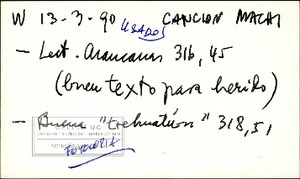 W 13-3-90 USADOS CANCION MACHI
- Lect. Araucanas 316, 45
(buen texto para herido)
- Buena "trehuatún" 318,51
FOTOCOPIA